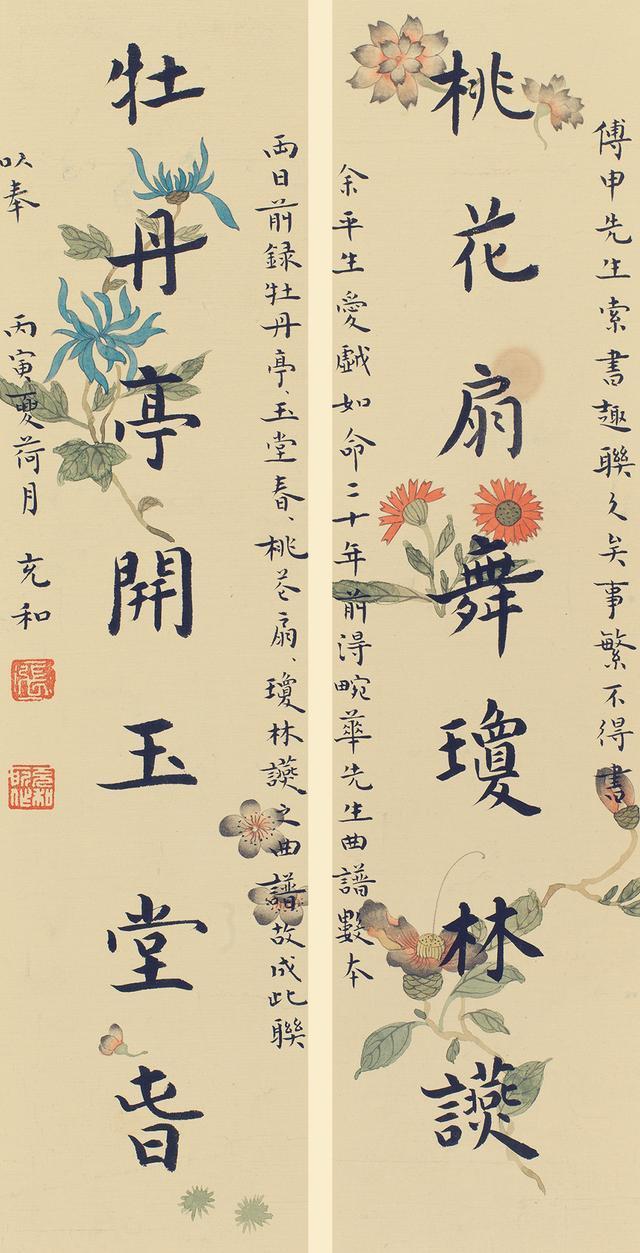 傅申先生索書趣聯久矣事繁不得書
桃花扇舞瓊林讌
余平生愛戯如命二十年前得畹華先生曲譜數本
兩日前録牡丹亭、玉堂春、桃花扇、瓊林讌之曲譜故成此聯
牡丹亭開玉堂旾
以奉
丙寅夏荷月 充和
張